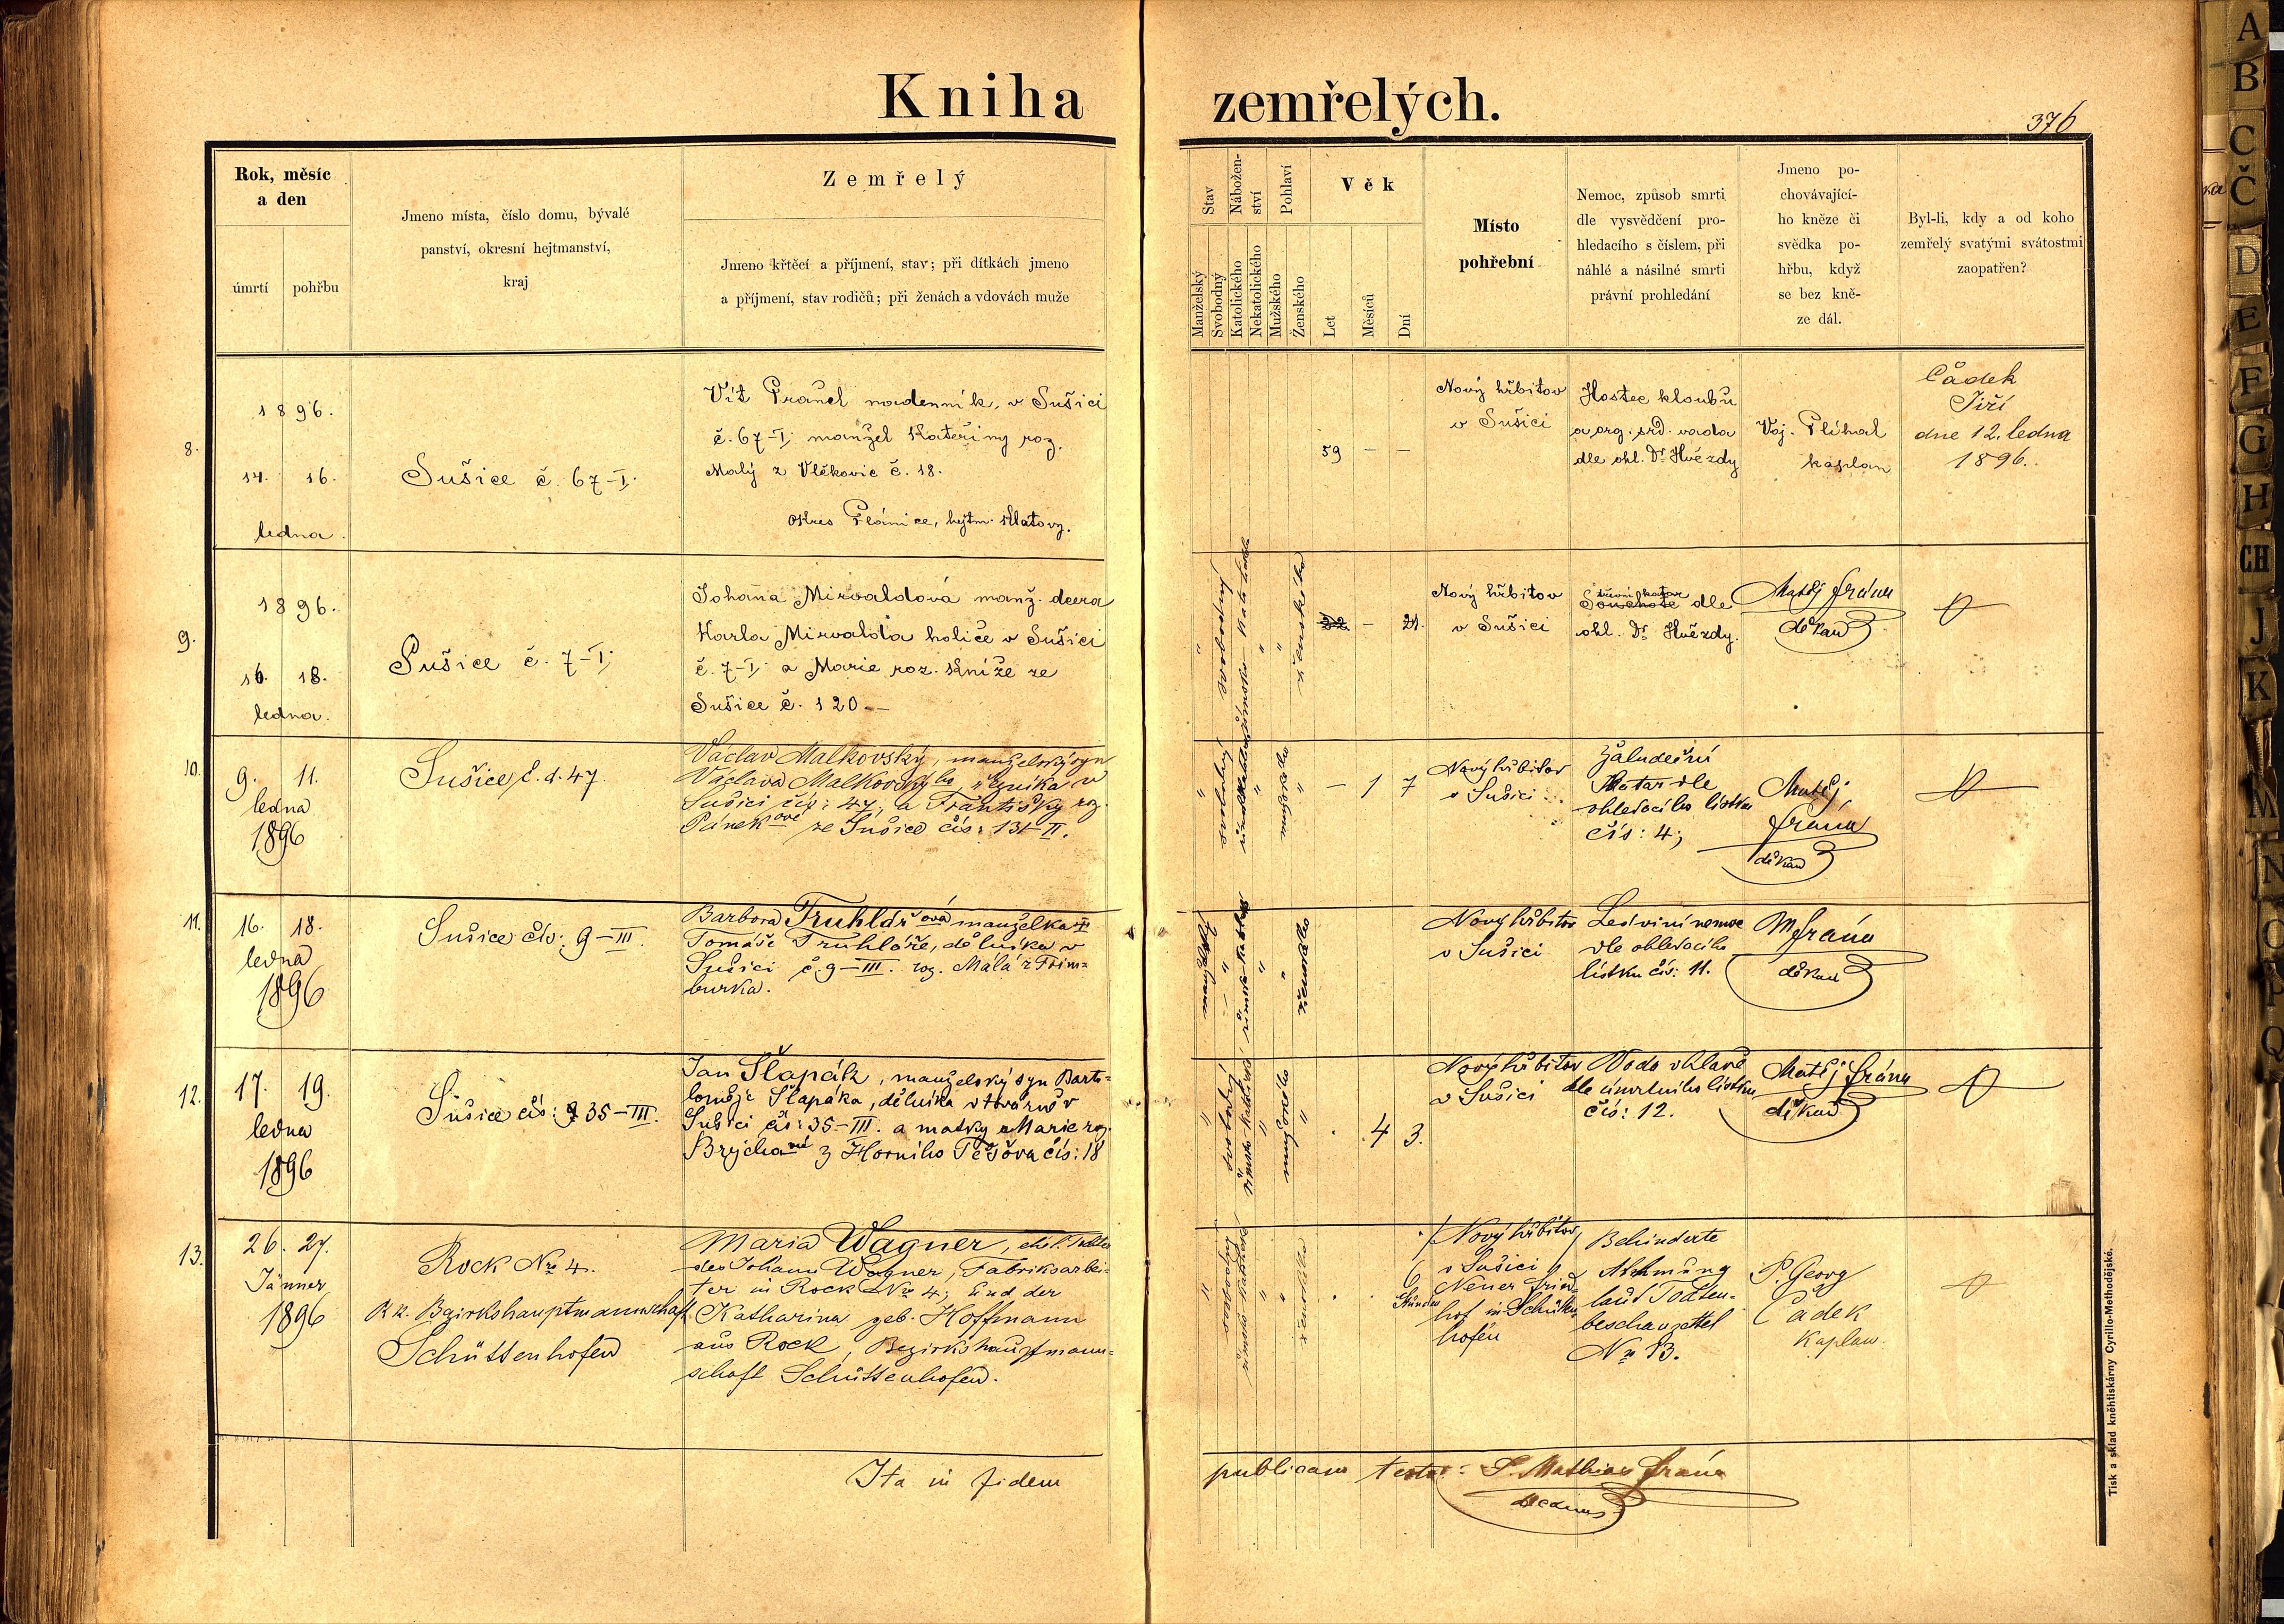 Kniha zemřelých.
376
Rok, měsíc
a den
úmrtí
pohřbu
Jmeno místa, číslo domu, bývalé
panství, okresní hejtmanství,
kraj
Zemřelý
Jmeno křtěcí a příjmení, stav; při dítkách jmeno
a příjmení, stav rodičů; při ženách a vdovách muže
Stav
Nábožen-
ství
Pohlaví
Věk
Manželský
Svobodný
Katolického
Nekatolického
Mužského
Ženského
Let
Měsíců
Dní
Místo
pohřební
Nemoc, způsob smrti
dle vysvědčení pro-
hledacího s číslem, při
náhlé a násilné smrti
právní prohledání
Jmeno po-
chovávající-
ho kněze či
svědka po-
hřbu, když
se bez kně-
ze dál.
Byl-li, kdy a od koho
zemřelý svatými svátostmi
zaopatřen?
8.
1896.
14. 16.
ledna.
Sušice č. 67-I.
Vít nadenník, v Sušici
č. 67-I. manžel Kateřiny roz.
Malý z Vlčkovic č. 18.
okres Plánice, hejtm. Klatovy.
59 — —
Nový hřbitov
v Sušici
Hostec kloubů
a org. srd. vada
dle ohl. Dr. Hvězdy
Voj. Plíhal
kaplan
Čádek
Jiří
dne 12. ledna
1896.
9.
1896.
16. 18.
ledna.
Sušice č. 7-I.
Johana Mirvaldová manž. dcera
Karla Mirvalda holiče v Sušici
č. 7-I. a Marie roz. Kníže ze
Sušice č. 120.—
" svobodný římsko-katolické " " ženského
— 21.
Nový hřbitov
v Sušici
střevní katar
Souchotě dle
ohl. Dr. Hvězdy.
Matěj Frána
děkan
10.
9. 11.
ledna
1896
Sušice č. d. 47.
Václav Malkovský, manželský syn
Václava Malkovského, v
Sušici čís: 47, a Františky roz.
Pánekové ze Sušice čís: 131-II.
" svobodný " mužského "
— 1 7
Nový hřbitov
v Sušici
Žaludeční
Katar dle
ohledacího lístku
čís: 4;
Matěj
Frána
děkan
11.
16. 18.
ledna
1896
Sušice čís: 9-III.
Barbora Truhlářová manželka
Tomáše Truhláře, dělníka v
Sušici č. 9-III. roz. Malá z Frim=
burka.
manželský " " " ženského
Nový hřbitov
v Sušici
Ledviní nemoc
dle ohledacího
lístku čís: 11.
M Frána
děkan
12.
17. 19.
ledna
1896
Sušice čís: 35-III.
Jan Šlapák, manželský syn Barto=
loměje Šlapáka, dělníka v továrně v
Sušici čís: 35-III. a matky Marie roz.
Brýchové z Horního Těšova čís: 18
" svobodný římsko katolické " mužského "
. 4 3.
Nový hřbitov
v Sušici
Voda v hlavě
dle úmrtního lístku
čís: 12.
Matěj Frána
děkan
13.
26. 27.
Jänner
1896
Rock No 4.
K. k. Bezirkshauptmannschaft
Schüttenhofen
Maria Wagner, ehel. Tochter
des Johann Wagner, Fabriksarbei-
ter in Rock No 4, und der
Katharina geb. Hoffmann
aus Rock, Bezirkshauptmann=
schaft Schüttenhofen.
" svobodný římsko katolické " " ženského
. . 6
Stunden
Nový hřbitov
v Sušici
Neuer Fried-
hof in Schütten-
hofen
Behinderte
Athmung
laut Todten-
beschauzettel
No 13.
P. Georg
Čádek
Kaplan.
Ita in fidem publicam testor: P. Mathias Frána
Decanus
Tisk a sklad kněhtiskárny Cyrillo-Methodějské.
A
B
C
Č
D
E
F
G
H
CH
J
K
L
M
N
O
P
Q